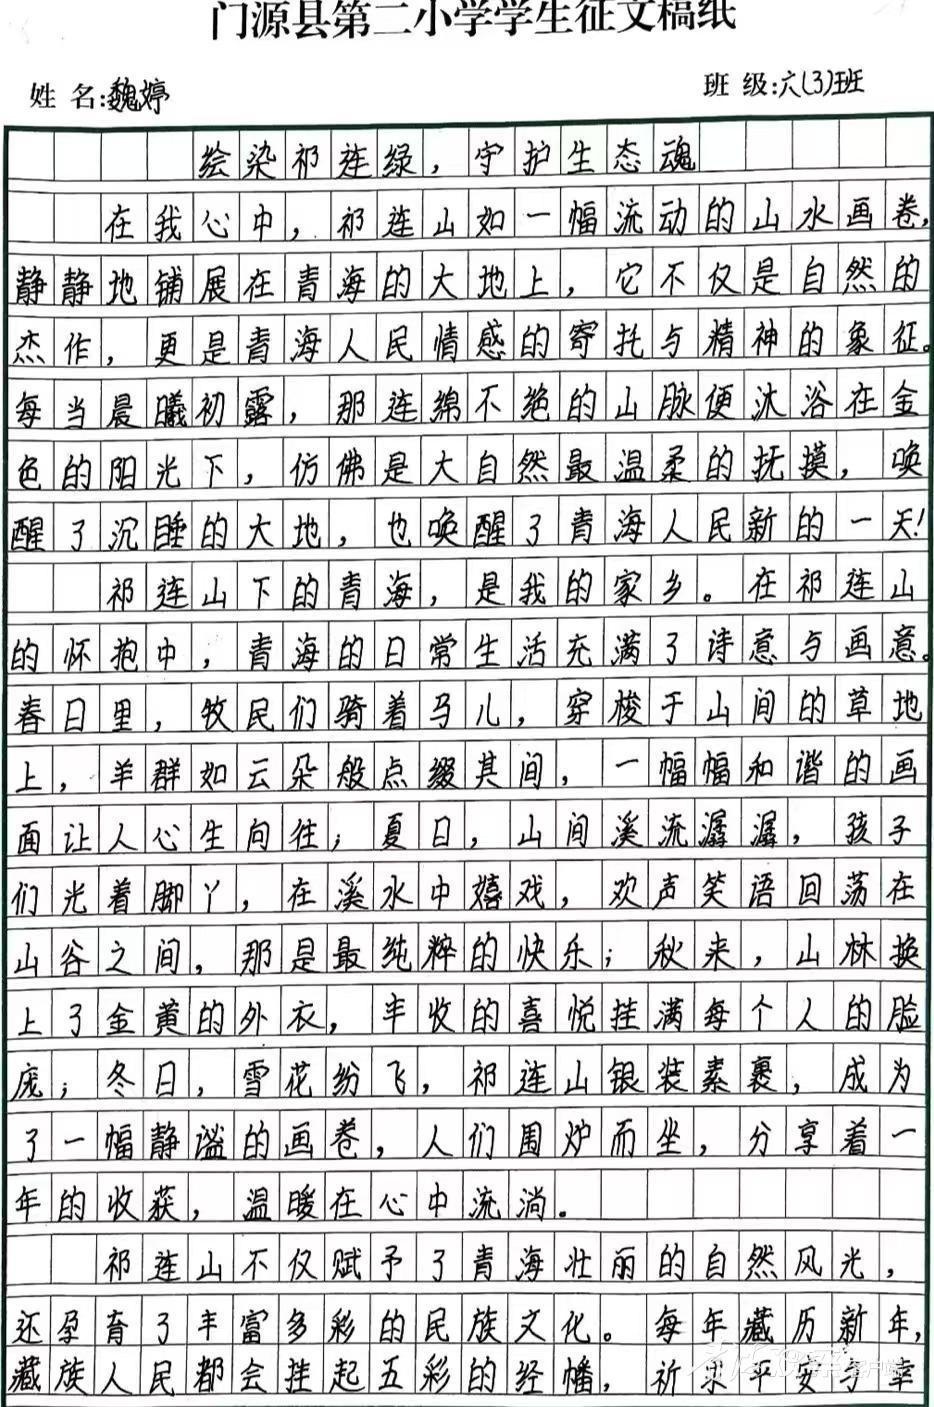 门源县第二小学学生征文稿纸
姓名:魏婷 班级:六(3)班
绘染祁连绿，守护生态魂
在我心中，祁连山如一幅流动的山水画卷，
静静地铺展在青海的大地上，它不仅是自然的
杰作，更是青海人民情感的寄托与精神的象征。
每当晨曦初露，那连绵不绝的山脉便沐浴在金
色的阳光下，仿佛是大自然最温柔的抚摸，唤
醒了沉睡的大地，也唤醒了青海人民新的一天!
祁连山下的青海，是我的家乡。在祁连山
的怀抱中，青海的日常生活充满了诗意与画意。
春日里，牧民们骑着马儿，穿梭于山间的草地
上，羊群如云朵般点缀其间，一幅幅和谐的画
面让人心生向往；夏日，山间溪流潺潺，孩子
们光着脚丫，在溪水中嬉戏，欢声笑语回荡在
山谷之间，那是最纯粹的快乐；秋来，山林换
上了金黄的外衣，丰收的喜悦挂满每个人的脸
庞；冬日，雪花纷飞，祁连山银装素裹，成为
了一幅静谧的画卷，人们围炉而坐，分享着一
年的收获，温暖在心中流淌。
祁连山不仅赋予了青海壮丽的自然风光，
还孕育了丰富多彩的民族文化。每年藏历新年，
藏族人民都会挂起五彩的经幡，祈求平安与幸